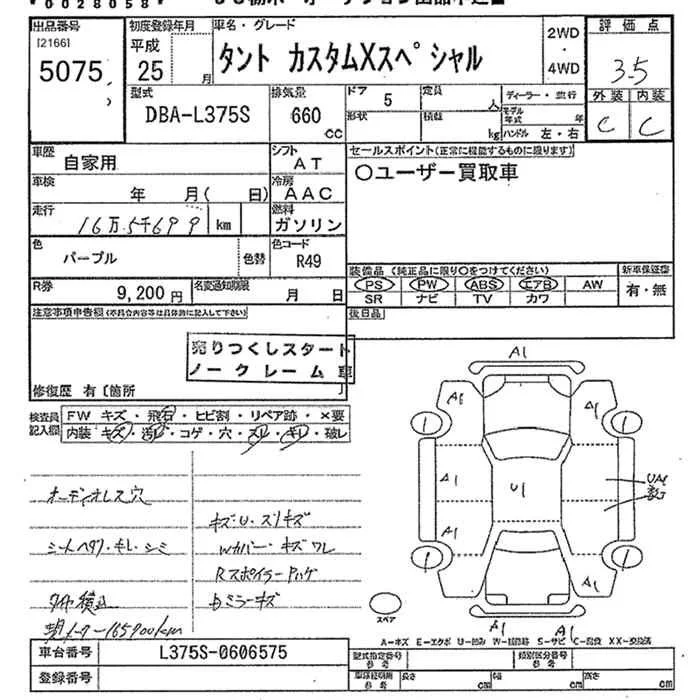 出品番号
[2166]
5075
初度登録年月
平成
25 月
車名・グレード
タント カスタムXスペシャル
2WD
・
4WD
評価点
3.5
外装 内装
C C
型式
DBA-L375S
排気量
660
cc
ドア 5
定員 人
形状
積載 kg
ディーラー・並行
モデル年式 年
ハンドル 左・右
車歴
自家用
シフト
AT
セールスポイント(正常に機能するものに限ります)
○ユーザー買取車
車検
年 月( 日)
冷房
AAC
走行
16万5千699 km
燃料
ガソリン
色
パープル
色替
色コード
R49
R券
9,200 円
名変通知期限
月 日
装備品(純正品に限り○をつけてください)
PS PW ABS エアB AW
SR ナビ TV カワ
新車保証書
有・無
注意事項申告欄(不具合内容等は具体的に記入して下さい)
後日品
売りつくしスタート
ノークレーム車
修復歴 有〔箇所 〕
検査員記入欄
FW キズ・飛石・ヒビ割・リペア跡・×要
内装 キズ・汚レ・コゲ・穴・スレ・キレ・破レ
オーディオレス穴
キズ・U・スリキズ
シートヘタリ・キレ・シミ
Wカバー・キズ ワレ
Rスポイラーハゲ
タイヤ積込
ドミラーキズ
165900km
A1
A1
A1
A1
U1
UA1
A1
A1
A1
A1
A1
1
1
1
1
スペア
A-キズ E-エクボ U-凹み W-補修跡 S-サビ C-腐食 XX-交換済
車台番号
L375S-0606575
登録番号
型式指定番号
参考
類別区分番号
参考
車検証記期
参考
長さ cm
幅 cm
高さ cm